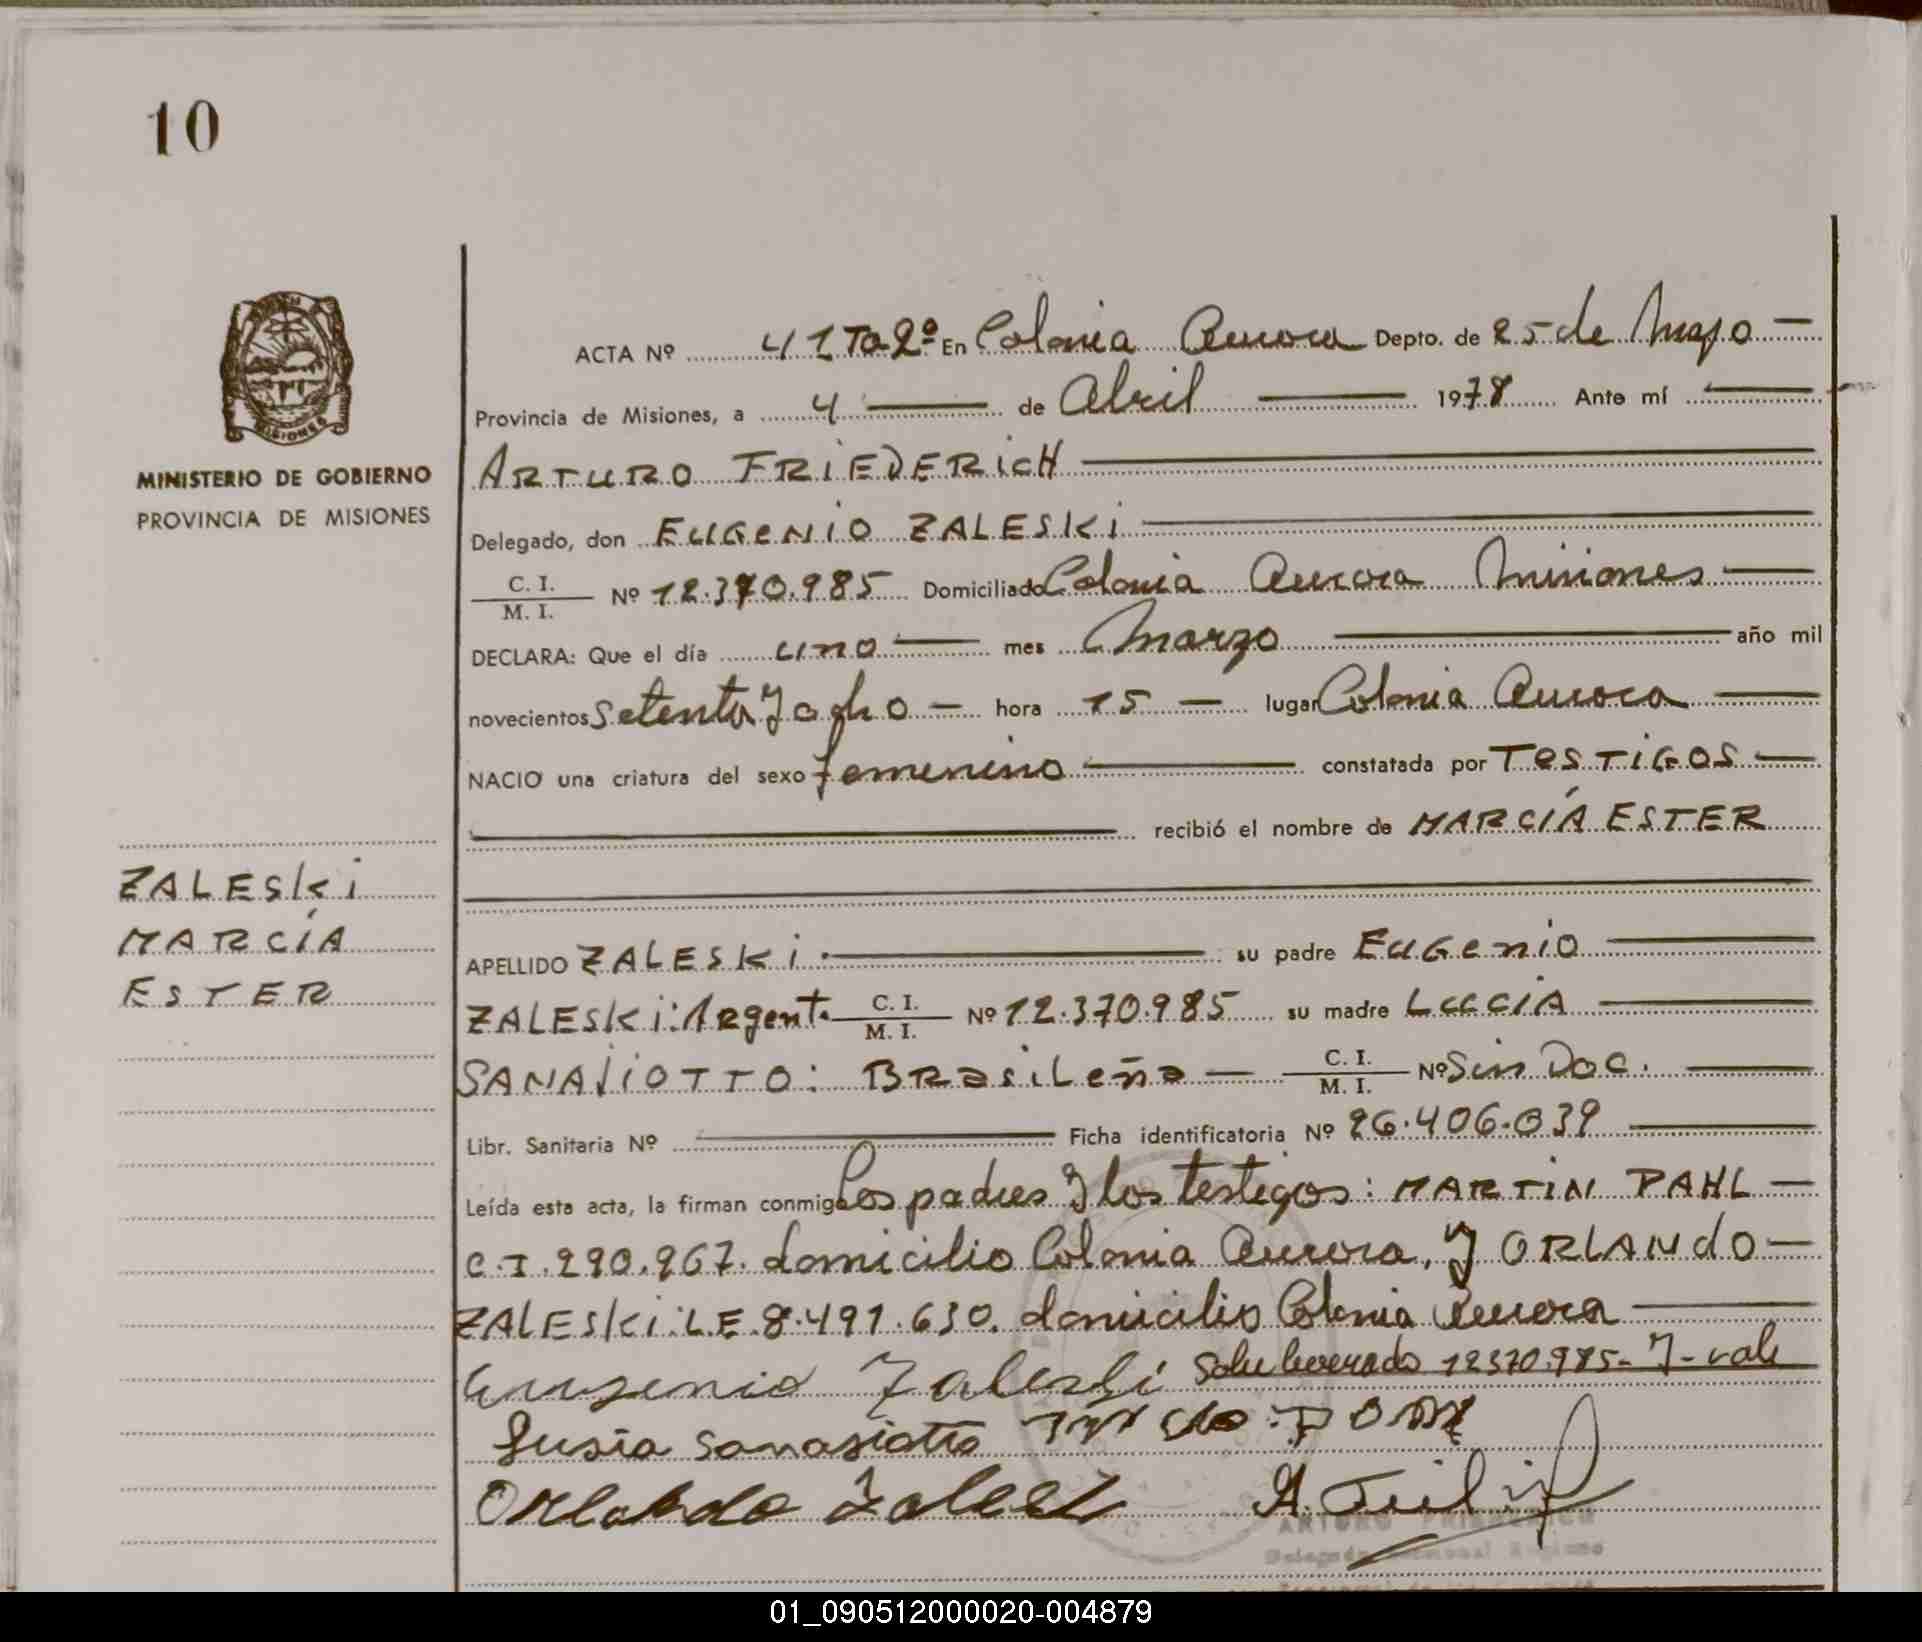 10
MISIONES
MINISTERIO DE GOBIERNO
PROVINCIA DE MISIONES
ACTA Nº 41 To 2º En Colonia Aurora Depto. de 25 de Mayo
Provincia de Misiones, a 4 de Abril 1978 Ante mí
ARTURO FRIEDERICH
Delegado, don EUGENIO ZALESKI
C. I.
M. I.
Nº 12.370.985 Domiciliado Colonia Aurora Misiones
DECLARA: Que el día uno mes Marzo año mil
novecientos Setenta y ocho hora 15 lugar Colonia Aurora
NACIO una criatura del sexo femenino constatada por TESTIGOS
recibió el nombre de MARCÍA ESTER
ZALESKI
MARCÍA
ESTER
APELLIDO ZALESKI su padre EUGENIO
ZALESKI: Argent. C. I.
M. I.
Nº 12.370.985 su madre LUCIA
SANAJIOTTO: BRasileña C. I.
M. I.
Nº Sin Doc.
Libr. Sanitaria Nº Ficha identificatoria Nº 26.406.039
Leída esta acta, la firman conmigo Los padres y los testigos: MARTIN PAHL
C.I. 290.267. domicilio Colonia Aurora, y ORLANDO
ZALESKI: L.E. 8.491.630. domicilio Colonia Aurora
Eugenio Zaleski Sobre borrado 12370.985- Y- vale
Lusia Sanagiotto
Orlando Zaleski A.
ARTURO FRIEDERICH
01_090512000020-004879